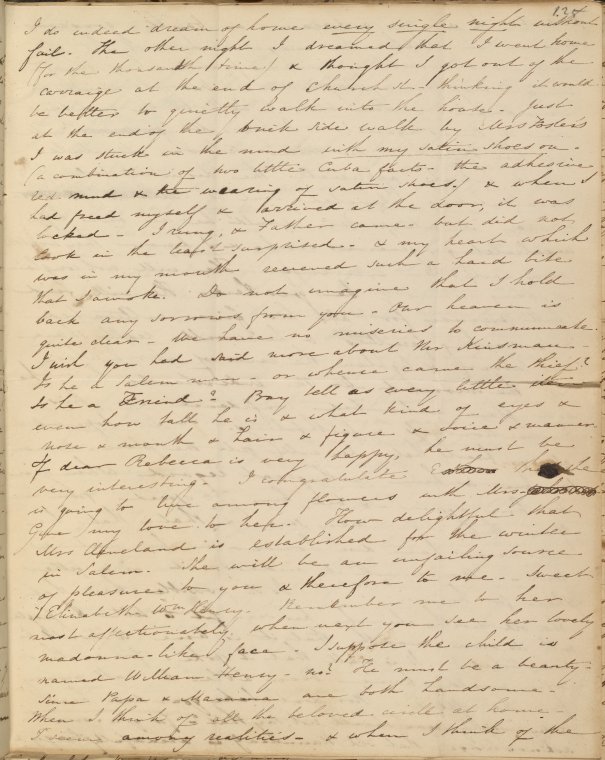 124
I do indeed dream of home every single night without
fail. The other night I dreamed that I went home
(for the thousandth time) & thought I got out of the
carriage at the end of Church St - thinking it would
be better to quietly walk into the house. Just
at the end of the brick side walk by Mrs Foster's
I was stuck in the mud with my satin shoes on -
(a combination of two little Cuba facts - the adhesive
red mud & the wearing of satin shoes.) & when I
had freed myself & arrived at the door, it was
locked - I rung, & Father came - but did not
look in the least surprised - & my heart which
was in my mouth received such a hard bite
that I awoke. Do not imagine that I hold
back any sorrows from you - Our heaven is
quite clear - We have no miseries to communicate.
I wish you had said more about Mr Kinsman -
Is he a Salem man - or whence came the thief?
Is he a Friend? Pray tell as every little
even how tall he is & what kind of eyes &
nose & mouth & hair & figure & voice & manner
If dear Rebecca is very happy, he must be
very interesting - I congratulate she
is going to live among flowers with Mrs
Give my love to her. How delightful that
Mrs Cleveland is established for the winter
in Salem. She will be an unfailing source
of pleasure to you & therefore to me. Sweet
Elizabeth Wm Henry. Remember me to her
most affectionately when next you see her lovely
madonna-like face - I suppose the child is
named William Henry - no? He must be a beauty -
since Papa & Mamma are both handsome -
When I think of all the beloved circle at home -
I seem among realities - & when I think of the